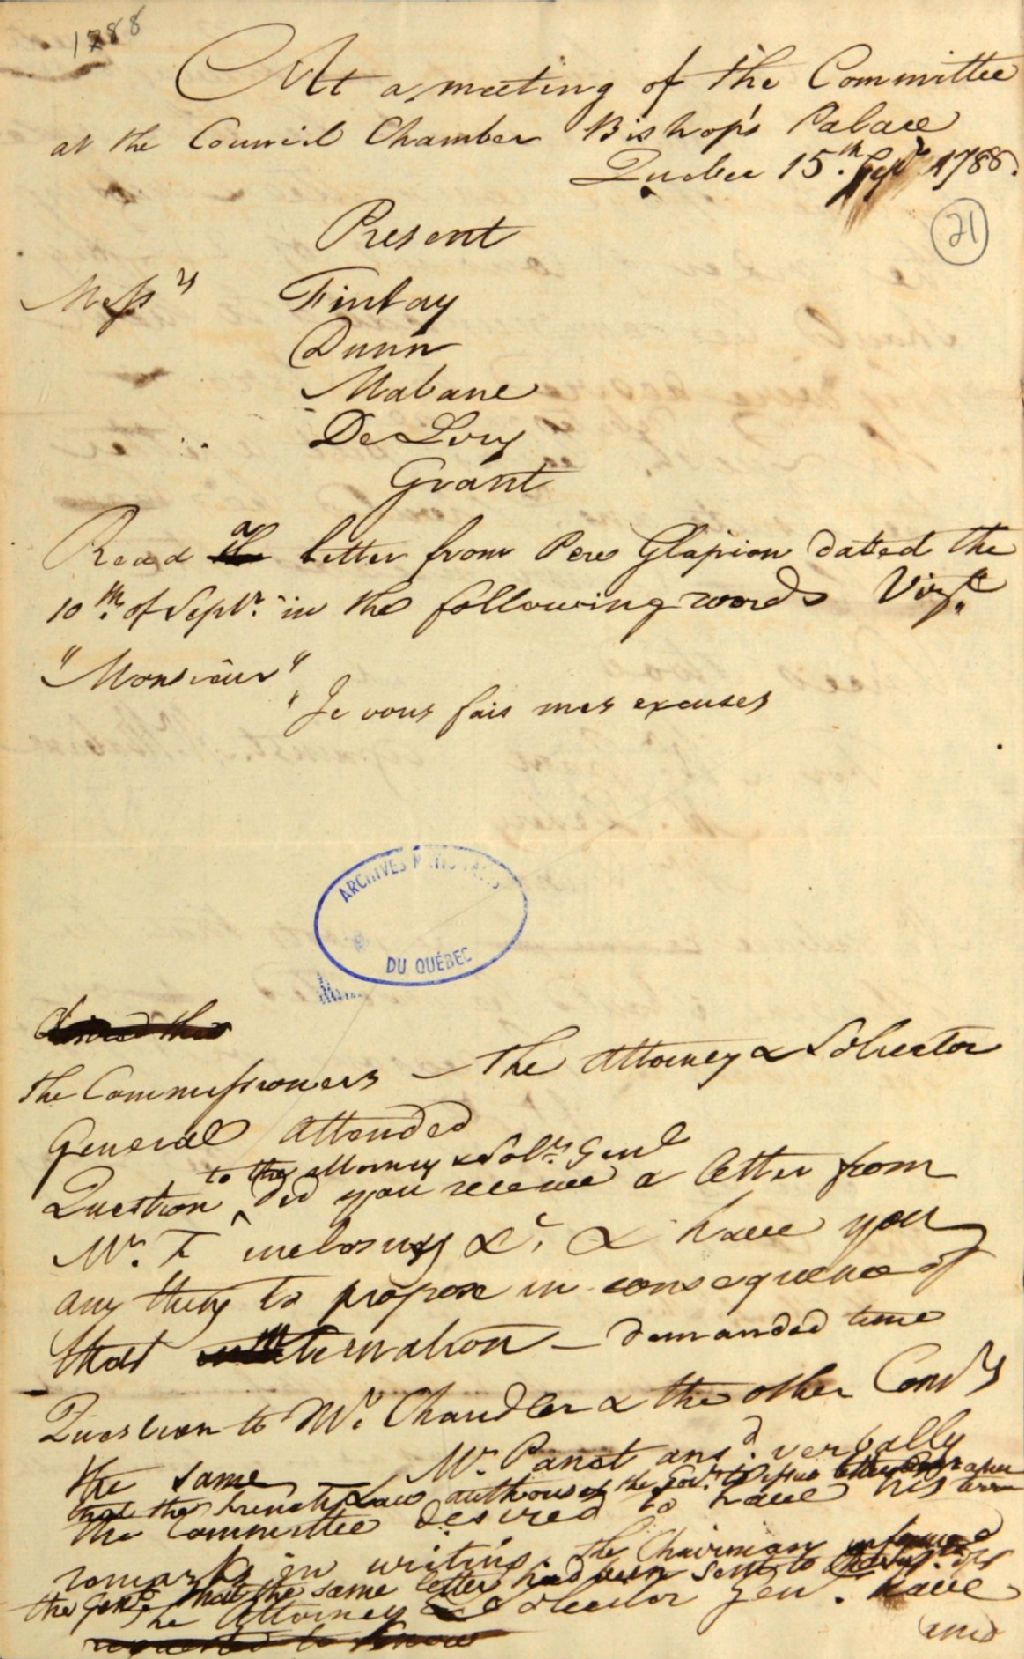 1788
At a meeting of the Committee
at the Council Chamber Bishop's Palace
Quebec 15.th Sepr 1788.
21
Present
Messrs Finlay
Dunn
Mabane
De Lery
Grant
Read the a letter from Pere Glapion dated the
10th. of Sepr. in the following words Vizt.
"Monsieur"
"Je vous fais mes excuses
ARCHIVES NATIONALES
DU QUÉBEC
the Commissioners – The Attorney & Solicitor
General attended
to the attorney & Solr. Genl
Question did you receive a letter from
Mr. F inclosing &c. & have you
any thing to propose in consequence of
that – demanded time
Question to Mr. Chandler & the other Comrs
the same – Mr. Panet ansd. verbally
that the French Law authorises the Govr. to issue
the Committee desired to have his
remarks in writing. the Chairman informed
the Gent. that the same letter had been sent to
The Attorney & Solicitor Gen. have
requested to know
and